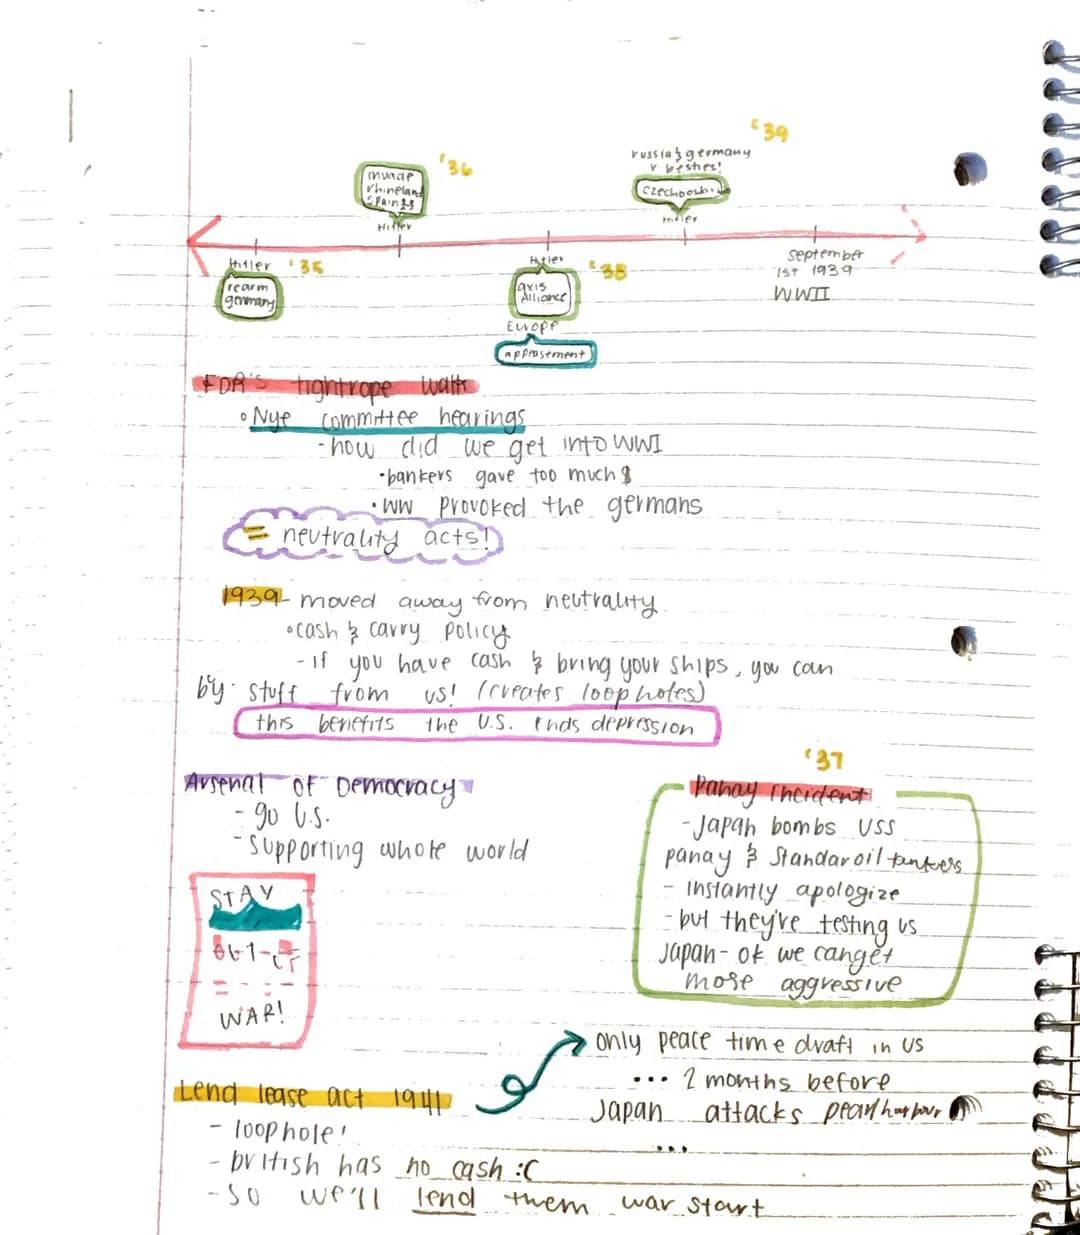 '39
russia & germany
r besties!
'36
invade
rhineland
Spain
Hitler
Hitler
Hitler
'35
rearm
germany
Hitler
'38
axis
Alliance
Europe
appeasement
September
1st 1939
WWII
FDR's tightrope walk
Nye committee hearings
- how did we get into WWI
• bankers gave too much $
• WW provoked the germans
= neutrality acts!
1939 - moved away from neutrality
• cash & carry policy
- if you have cash & bring your ships, you can
by stuff from us! (creates loopholes)
this benefits the U.S. ends depression
'37
Arsenal of Democracy
- go U.S.
- supporting whole world
Panay incident
- Japan bombs USS
panay & Standar oil tankers
- instantly apologize
- but they're testing us
Japan - ok we can get
more aggressive
STAY
OUT OF
WAR!
only peace time draft in US
... 2 months before
Japan attacks pearl harbour
...
Lend lease act 1941
- loophole!
- british has no cash :C
- so we'll lend them war start